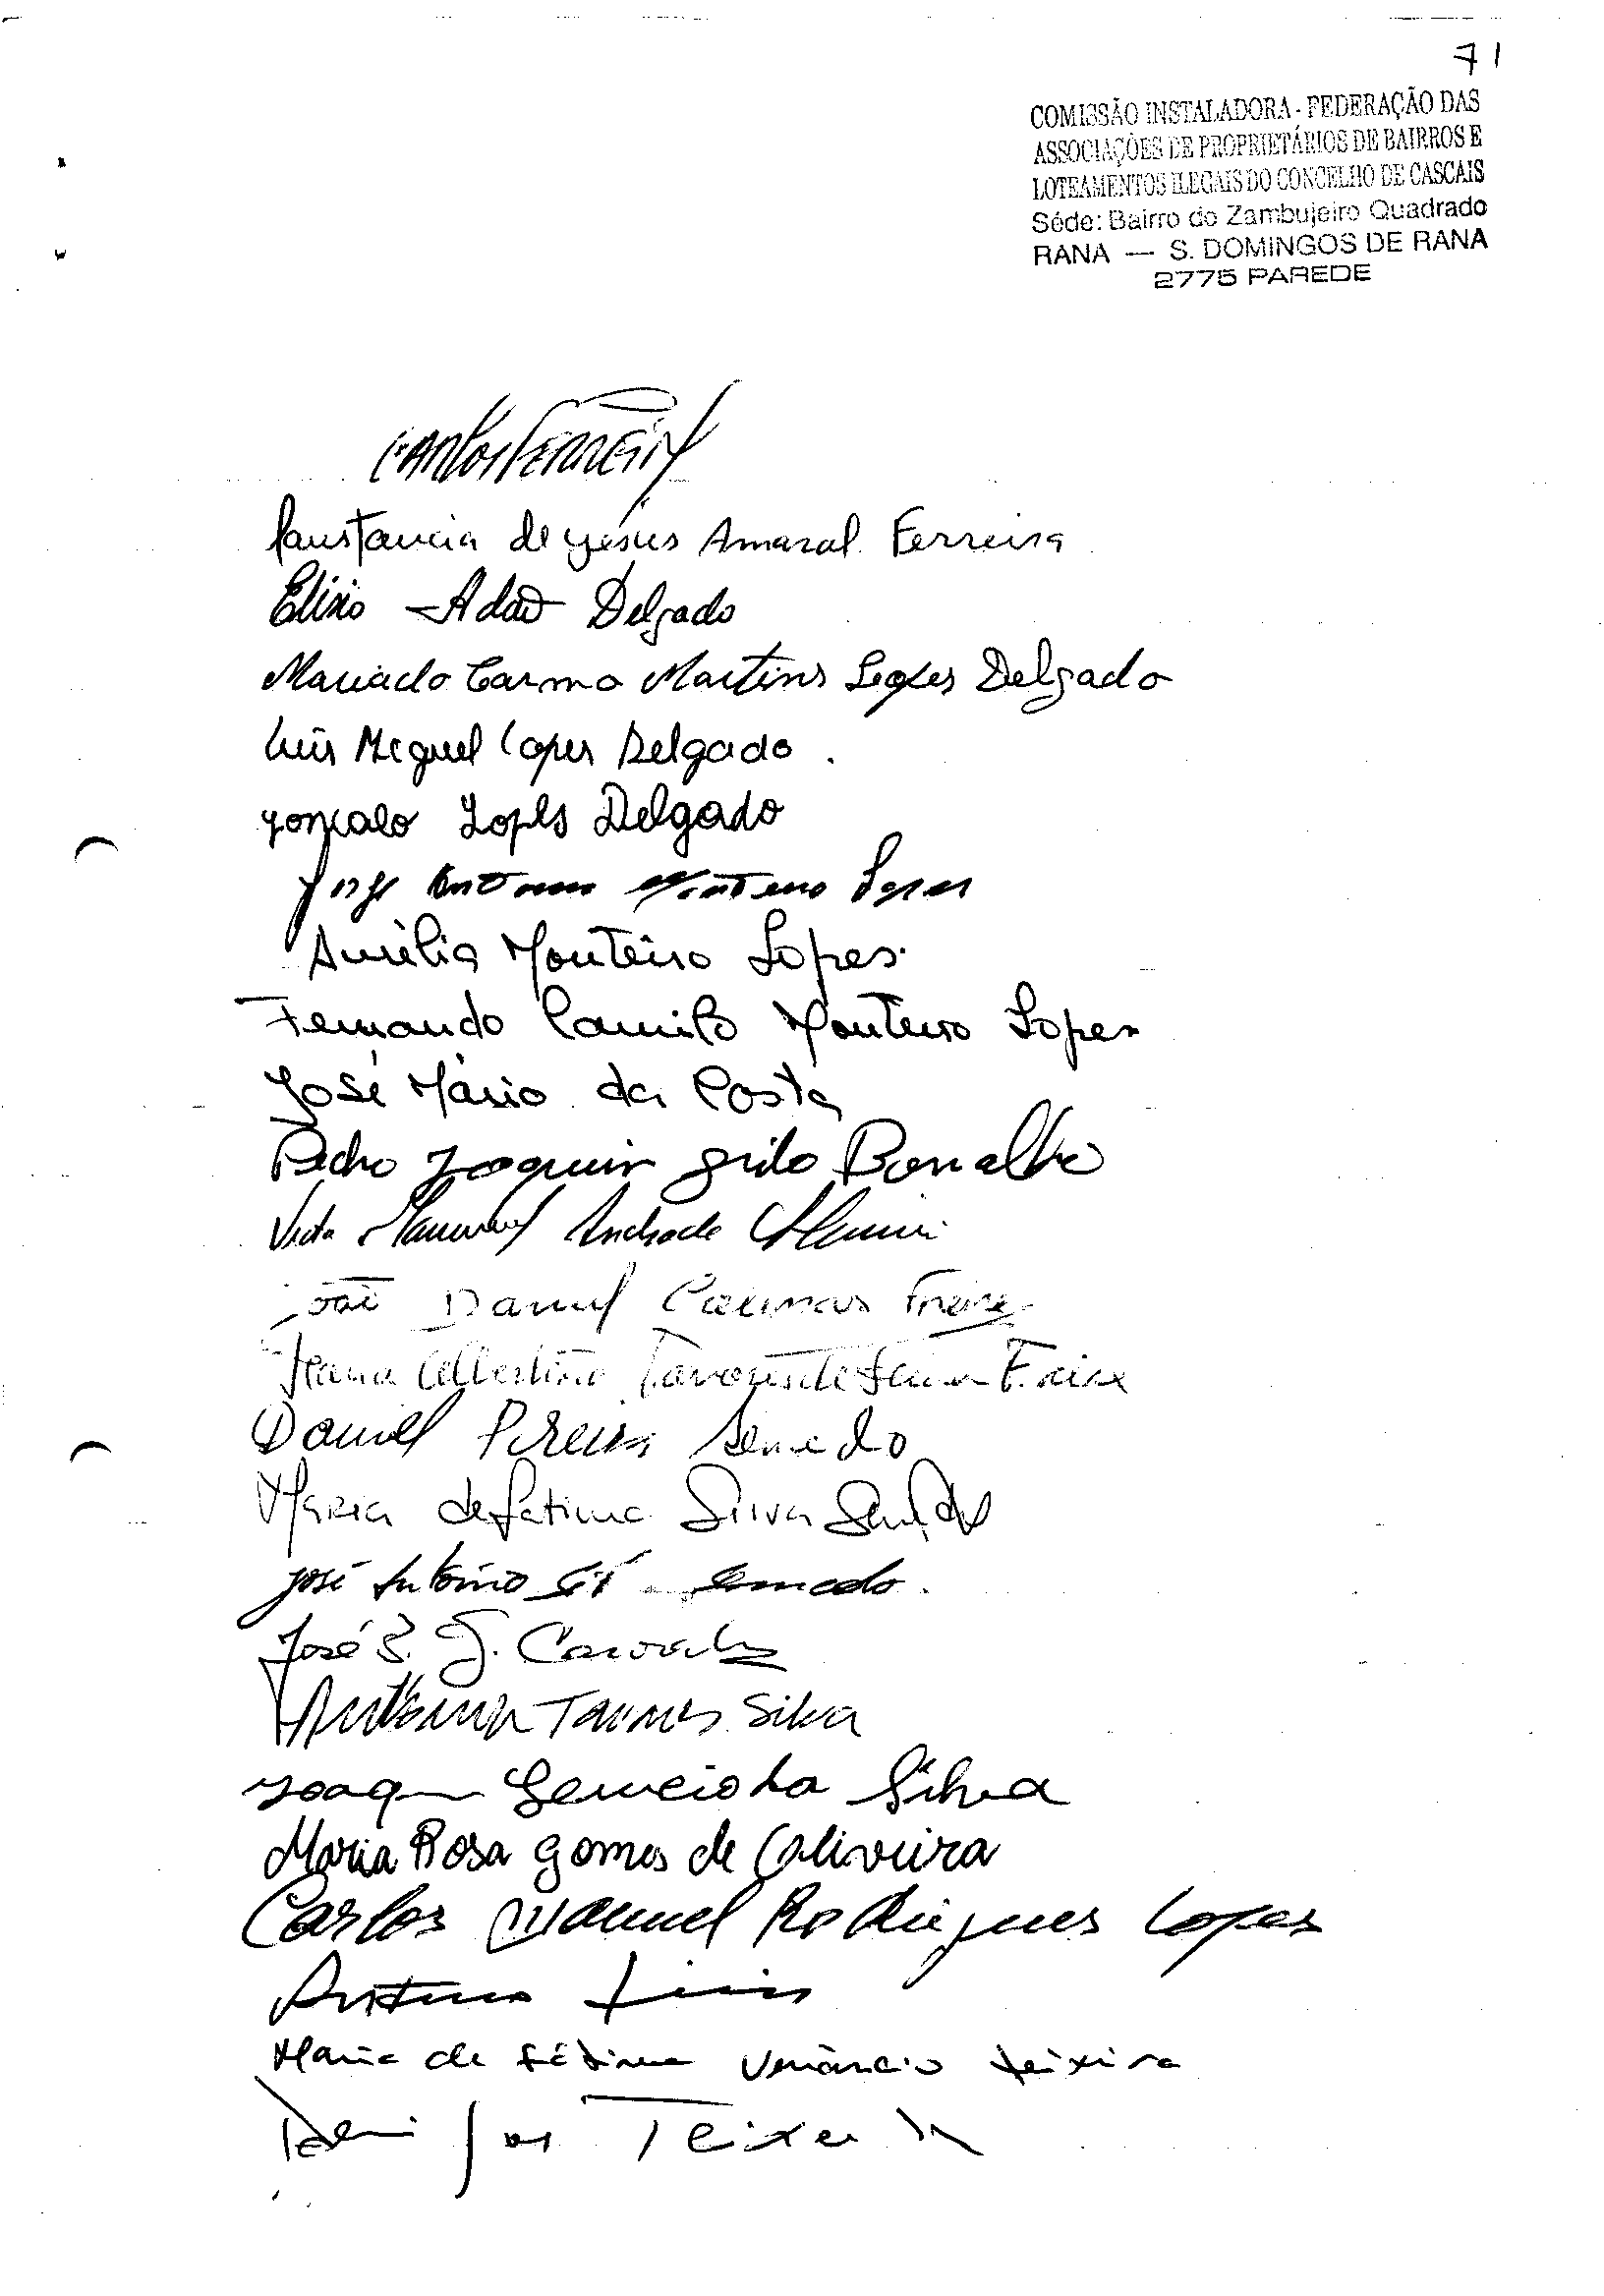 71
COMISSÃO INSTALADORA - FEDERAÇÃO DAS
ASSOCIAÇÕES DE PROPRIETÁRIOS DE BAIRROS E
LOTEAMENTOS ILEGAIS DO CONCELHO DE CASCAIS
Séde: Bairro do Zambujeiro Quadrado
RANA — S. DOMINGOS DE RANA
2775 PAREDE
Carlos Ferreira
Constancia de Jesus Amaral Ferreira
Elisio Adão Delgado
Maria do Carmo Martins Lopes Delgado
Luis Miguel Lopes Delgado.
Gonçalo Lopes Delgado
Jorge Antonio Monteiro Lopes
Aurélia Monteiro Lopes
Fernando Camilo Monteiro Lopes
José Mário da Costa
Pedro Joaquim Grilo
Victor Manuel Andrade
João Daniel Freire
Freire
Daniel Pereira Semedo
Maria de Fatima Silva
José António Semedo.
José J. Carvalho
Tavares Silva
da Silva
Maria Rosa Gomes de Oliveira
Carlos Manuel Rodrigues Lopes
Maria de Fátima Venâncio Teixeira
Teixeira